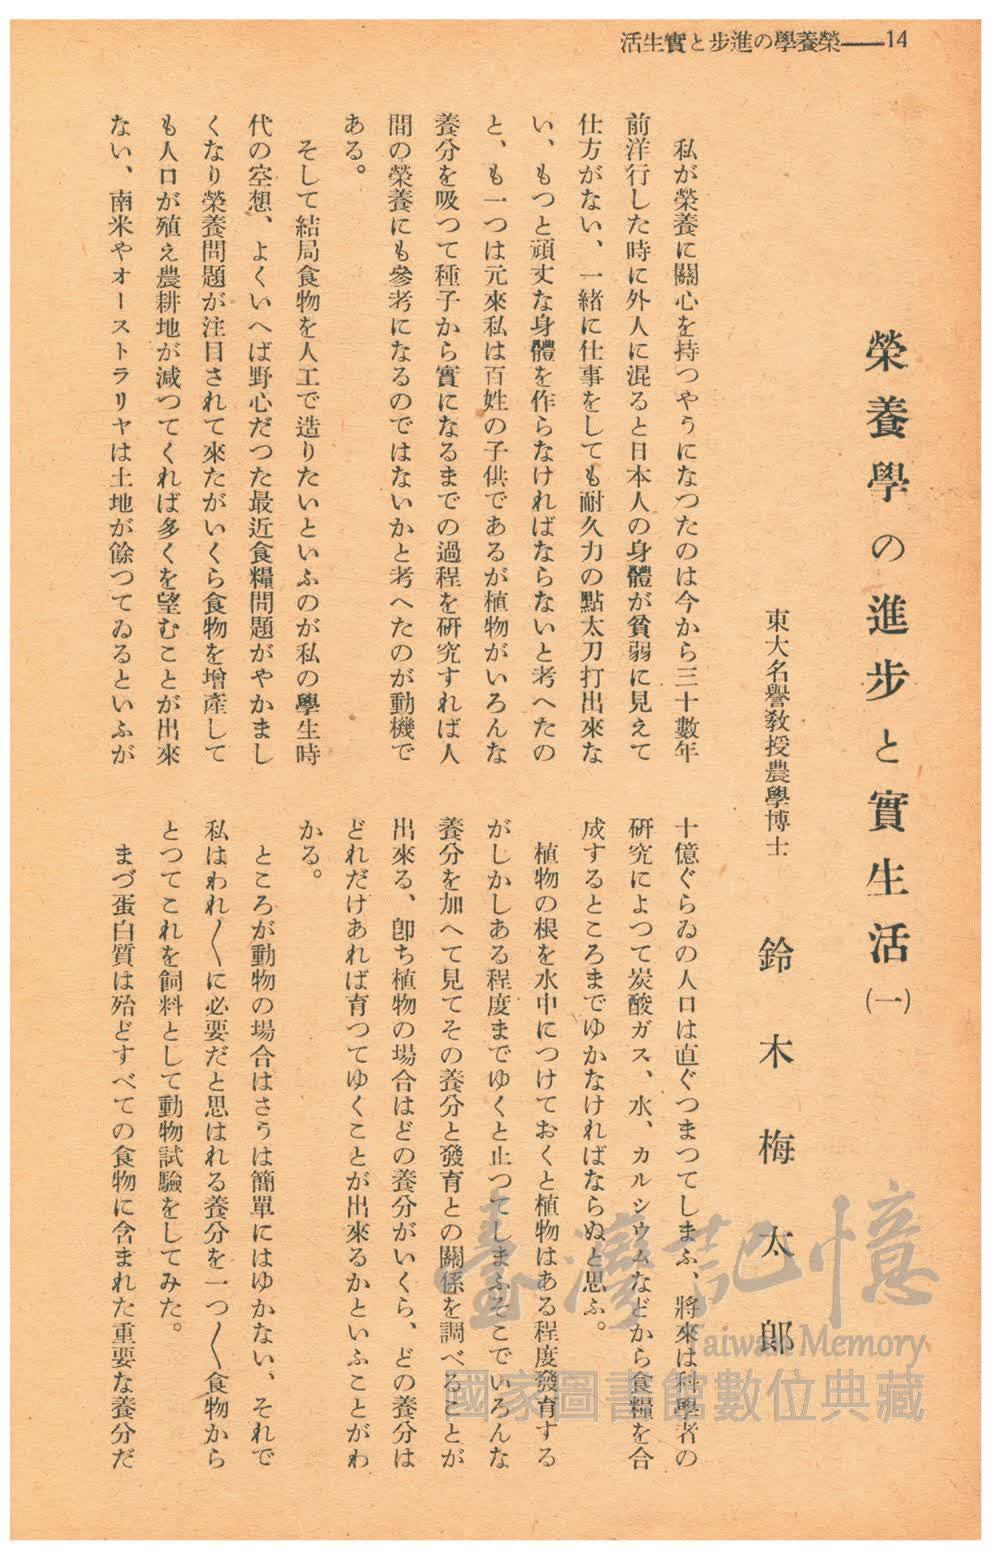 14——榮養學の進步と實生活
榮養學の進步と實生活(一)
東大名譽敎授農學博士 鈴木梅太郞
私が榮養に關心を持つやうになつたのは今から三十數年
前洋行した時に外人に混ると日本人の身體が貧弱に見えて
仕方がない、一緖に仕事をしても耐久力の點太刀打出來な
い、もつと頑丈な身體を作らなければならないと考へたの
と、も一つは元來私は百姓の子供であるが植物がいろんな
養分を吸つて種子から實になるまでの過程を硏究すれば人
間の榮養にも參考になるのではないかと考へたのが動機で
ある。
そして結局食物を人工で造りたいといふのが私の學生時
代の空想、よくいへば野心だつた最近食糧問題がやかまし
くなり榮養問題が注目されて來たがいくら食物を增產して
も人口が殖え農耕地が減つてくれば多くを望むことが出來
ない、南米やオーストラリヤは土地が餘つてゐるといふが
十億ぐらゐの人口は直ぐつまつてしまふ、將來は科學者の
硏究によつて炭酸ガス、水、カルシウムなどから食糧を合
成するところまでゆかなければならぬと思ふ。
植物の根を水中につけておくと植物はある程度發育する
がしかしある程度までゆくと止つてしまふそこでいろんな
養分を加へて見てその養分と發育との關係を調べることが
出來る、卽ち植物の場合はどの養分がいくら、どの養分は
どれだけあれば育つてゆくことが出來るかといふことがわ
かる。
ところが動物の場合はさうは簡單にはゆかない、それで
私はわれ〱に必要だと思はれる養分を一つ〱食物から
とつてこれを飼料として動物試驗をしてみた。
まづ蛋白質は殆どすべての食物に含まれた重要な養分だ
臺灣記憶
Taiwan Memory
國家圖書館數位典藏